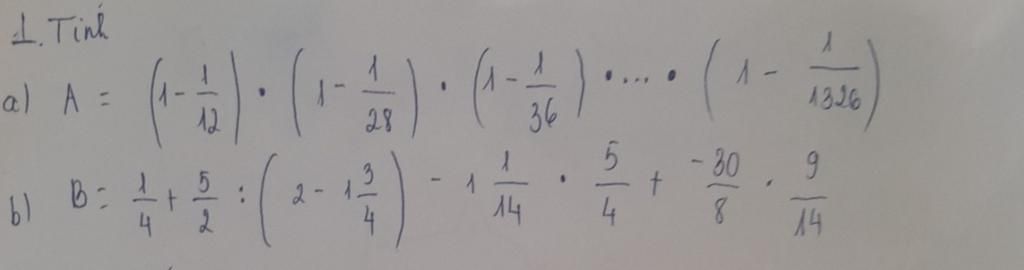 1. Tính
a) A = (1 - 1/12) · (1 - 1/28) · (1 - 1/36) · .... · (1 - 1/1326)
b) B = 1/4 + 5/2 : (2 - 1 3/4) - 1 1/14 · 5/4 + -30/8 · 9/14